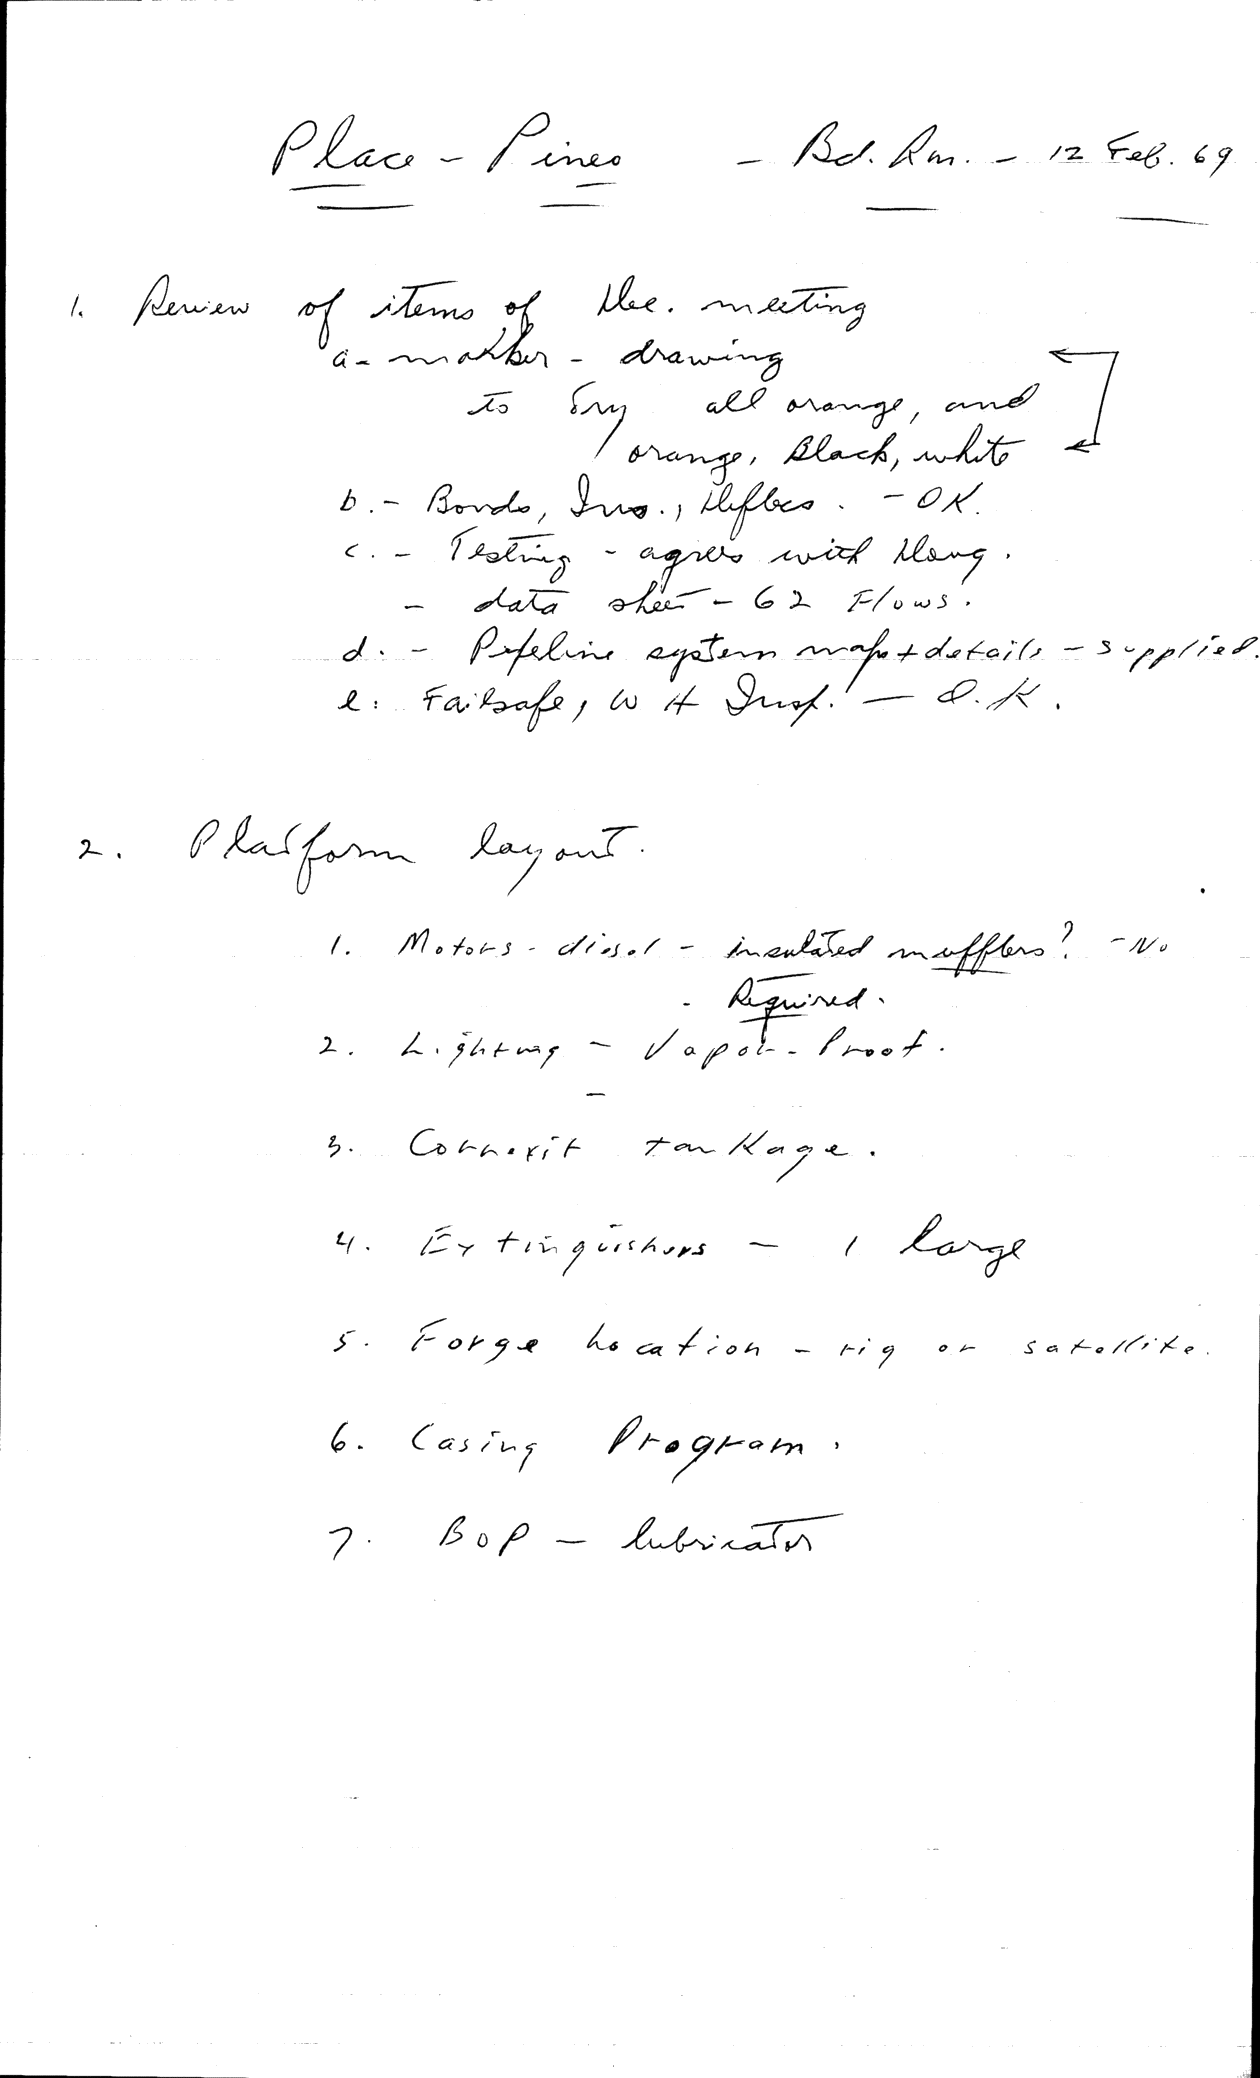 Place - Pines - Bd. Rm. - 12 Feb. 69
1. Review of items of Dec. meeting
a - marker - drawing
to try all orange, and
orange, Black, white
b. - Bonds, Ins., - OK.
c. - Testing - agrees with
- data sheet - 62 Flows.
d. - Pipeline system maps + details - supplied.
e. Failsafe, W H Insp. - O.K.
2. Platform layout.
1. Motors - diesel - insulated mufflers? - No
- Required.
2. Lighting - Vapor - Proof.
-
3. Correxit tankage.
4. Extinguishers - 1 large
5. Forge Location - rig or satellite.
6. Casing Program.
7. BOP - lubricator